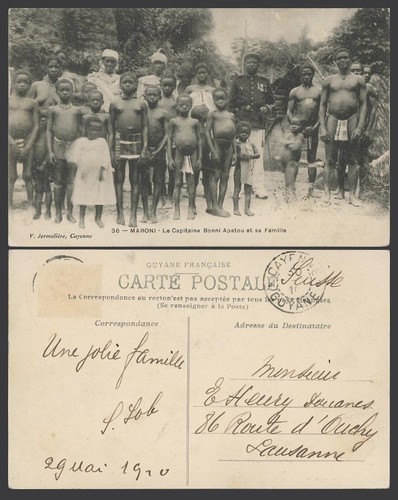 36 — MARONI - Le Capitaine Bonni Apatou et sa Famille
V. Jermolière, Cayenne
GUYANE FRANÇAISE
CARTE POSTALE
La Correspondance au recto n'est pas acceptée par tous
(Se renseigner à la Poste)
CAYENNE
GUYANE
Suisse
Correspondance
Adresse du Destinataire
Une jolie famille
S. Lob
29 Mai 1910
Monsieur
E Henry Douanes
86 Route d'Ouchy
Lausanne